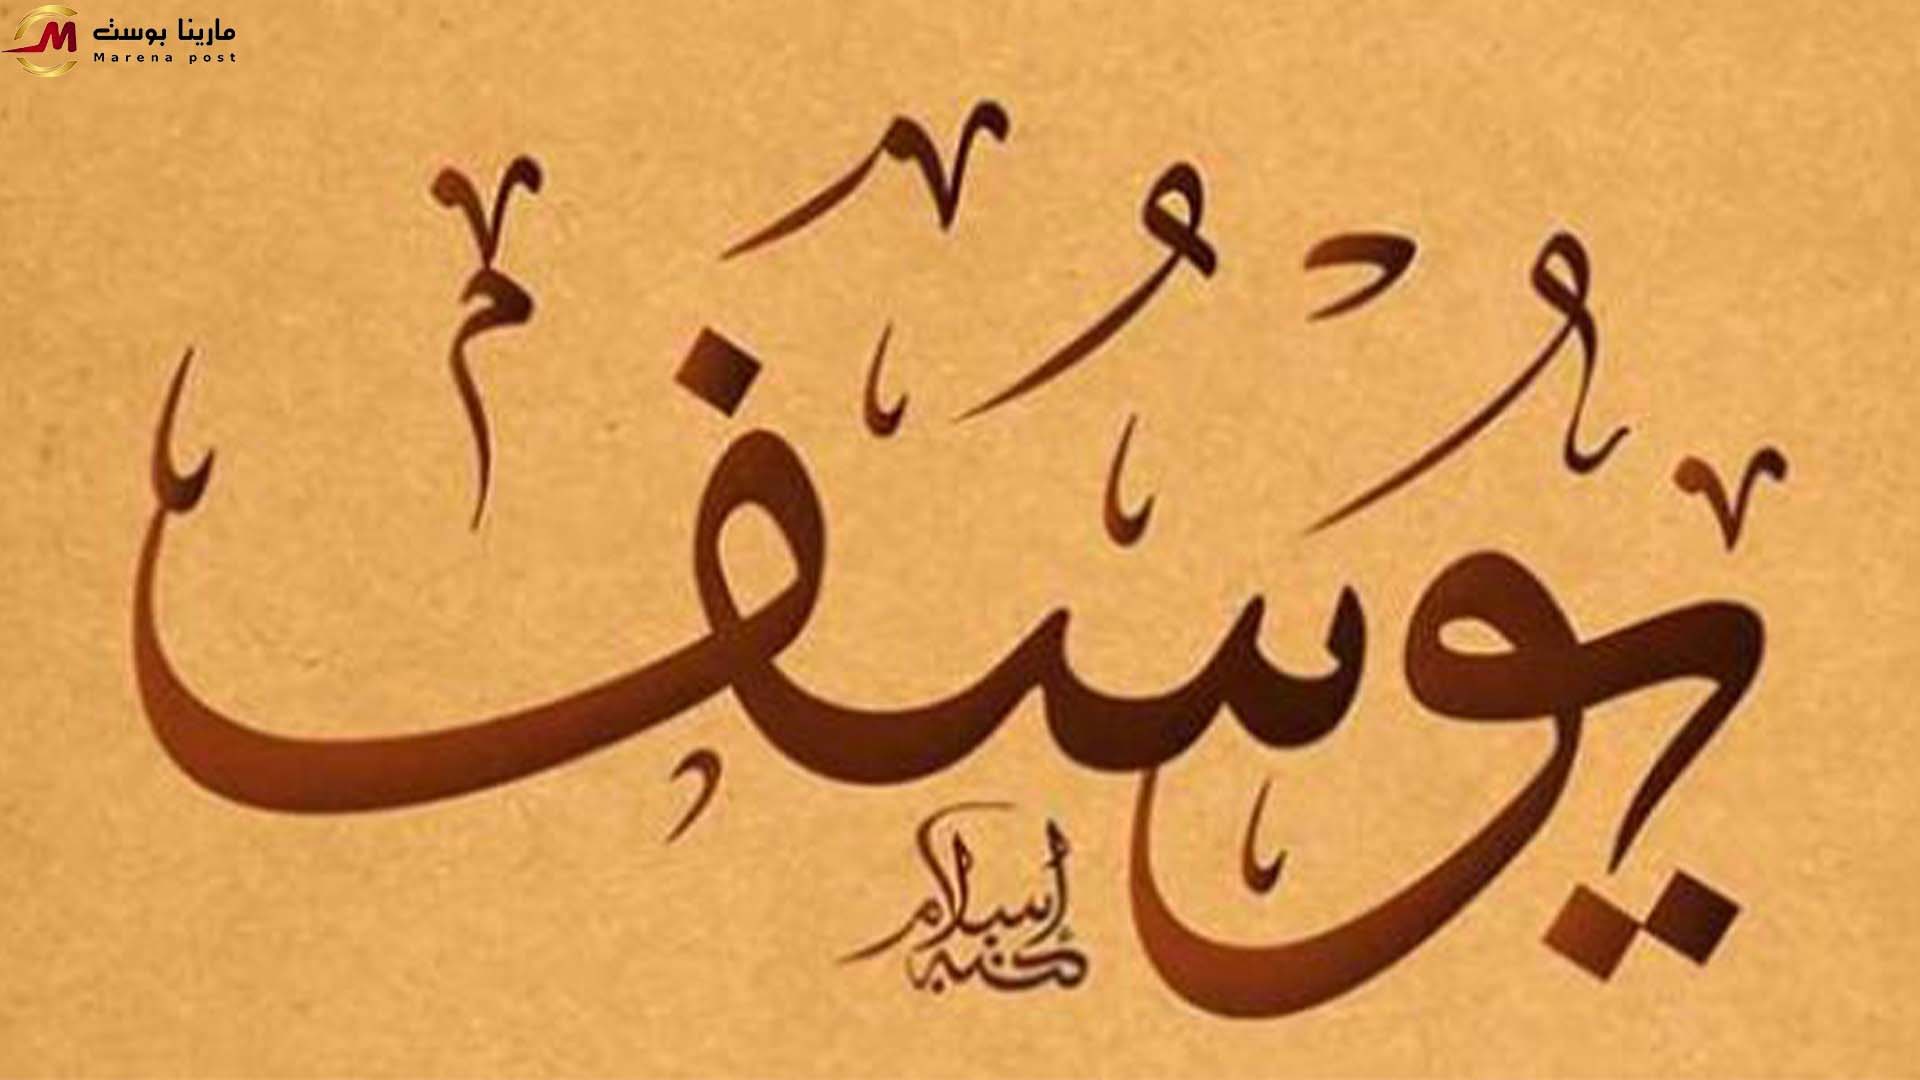 مارينا بوست
Marena post
يُوسُف
إسلام
كتبه